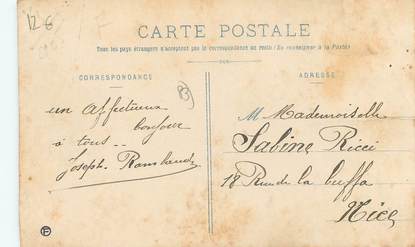 126
CARTE POSTALE
Tous les pays étrangers n'acceptent pas la correspondance au recto (Se renseigner à la Poste)
CORRESPONDANCE
ADRESSE
83
un affectueux
bonjour
à tous..
Joseph. Rambaud
M Mademoiselle
Sabine Ricci
18 Rue de la buffa
Nice
F